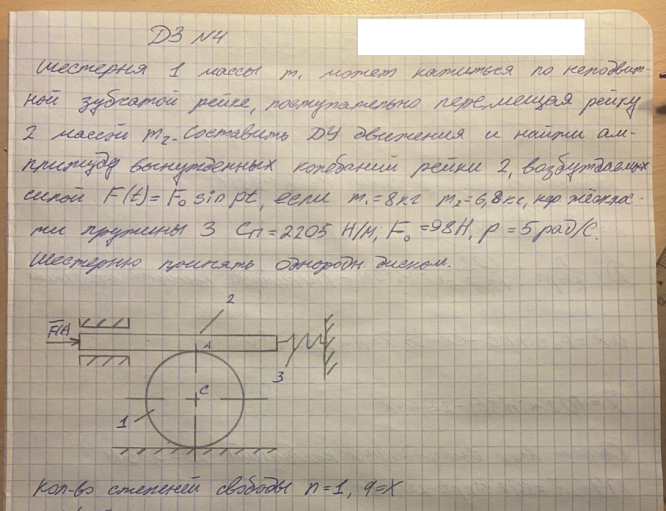 ДЗ №4
Шестерня 1 массы m₁ может катиться по неподвиж-
ной зубчатой рейке, поступательно перемещая рейку
2 массой m₂. Составить ДУ движения и найти ам-
плитуду вынужденных колебаний рейки 2, возбуждаемых
силой F(t)=F₀ sin pt, если m₁=8кг m₂=6,8кг, коэф. жёсткос-
ти пружины 3 Cп=2205 Н/м, F₀=98Н, p=5 рад/с.
Шестерню принять однородн. диском.
2
F(t)
A
3
C
1
Кол-во степеней свободы n=1, q=x